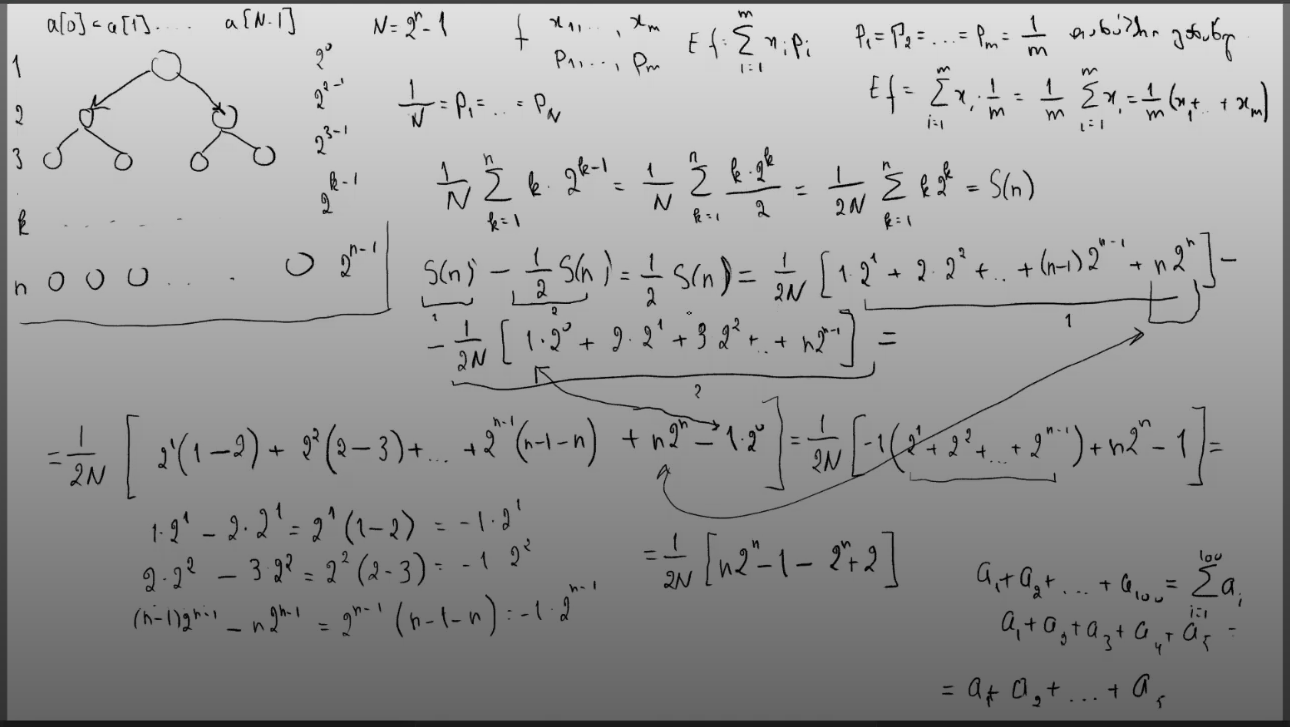 a[0] < a[1] .... a[N-1]
N = 2^n - 1
f x₁, ..., x_m
p₁, ..., p_m
E f = ∑_{i=1}^{m} x_i p_i
P₁ = P₂ = ... = P_m = 1/m
1 2^0
2 2^{2-1}
3 2^{3-1}
k ..... 2^{k-1}
n ... 2^{n-1}
1/N = P₁ = ... = P_N
E f = ∑_{i=1}^{m} x_i · 1/m = 1/m ∑_{i=1}^{m} x_i = 1/m (x₁ + .. + x_m)
1/N ∑_{k=1}^{n} k · 2^{k-1} = 1/N ∑_{k=1}^{n} k·2^k / 2 = 1/2N ∑_{k=1}^{n} k 2^k = S(n)
S(n) - 1/2 S(n) = 1/2 S(n) = 1/2N [1·2^1 + 2·2^2 + ... + (n-1)2^{n-1} + n2^n] -
1 2 1
- 1/2N [1·2^0 + 2·2^1 + 3 2^2 + .. + n2^{n-1}] =
2
= 1/2N [2^1(1-2) + 2^2(2-3) + ... + 2^{n-1}(n-1-n) + n2^n - 1·2^0] = 1/2N [-1(2^1 + 2^2 + ... + 2^{n-1}) + n2^n - 1] =
1·2^1 - 2·2^1 = 2^1(1-2) = -1·2^1
2·2^2 - 3·2^2 = 2^2(2-3) = -1 2^2
(n-1)2^{n-1} - n2^{n-1} = 2^{n-1}(n-1-n) = -1·2^{n-1}
= 1/2N [n2^n - 1 - 2^n + 2]
a₁ + a₂ + ... + a₁₀₀ = ∑_{i=1}^{100} a_i
a₁ + a₂ + a₃ + a₄ + a₅ =
= a₁ + a₂ + ... + a₅